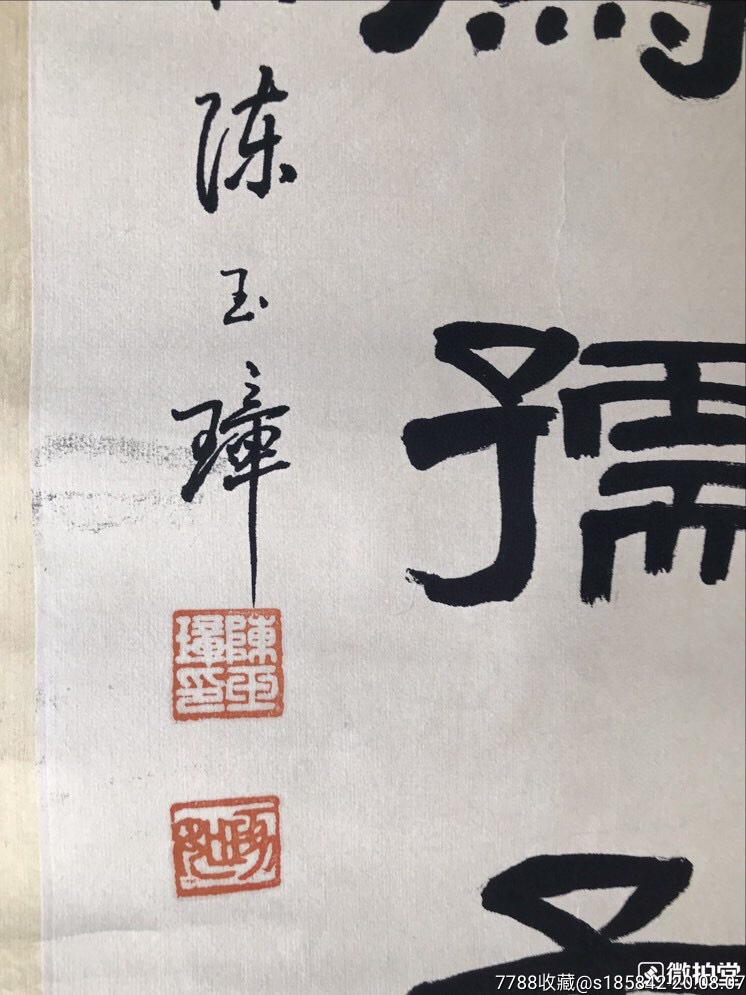 孺
陈玉璋
陳玉璋印
微拍堂
7788收藏@s185842 20.08.07